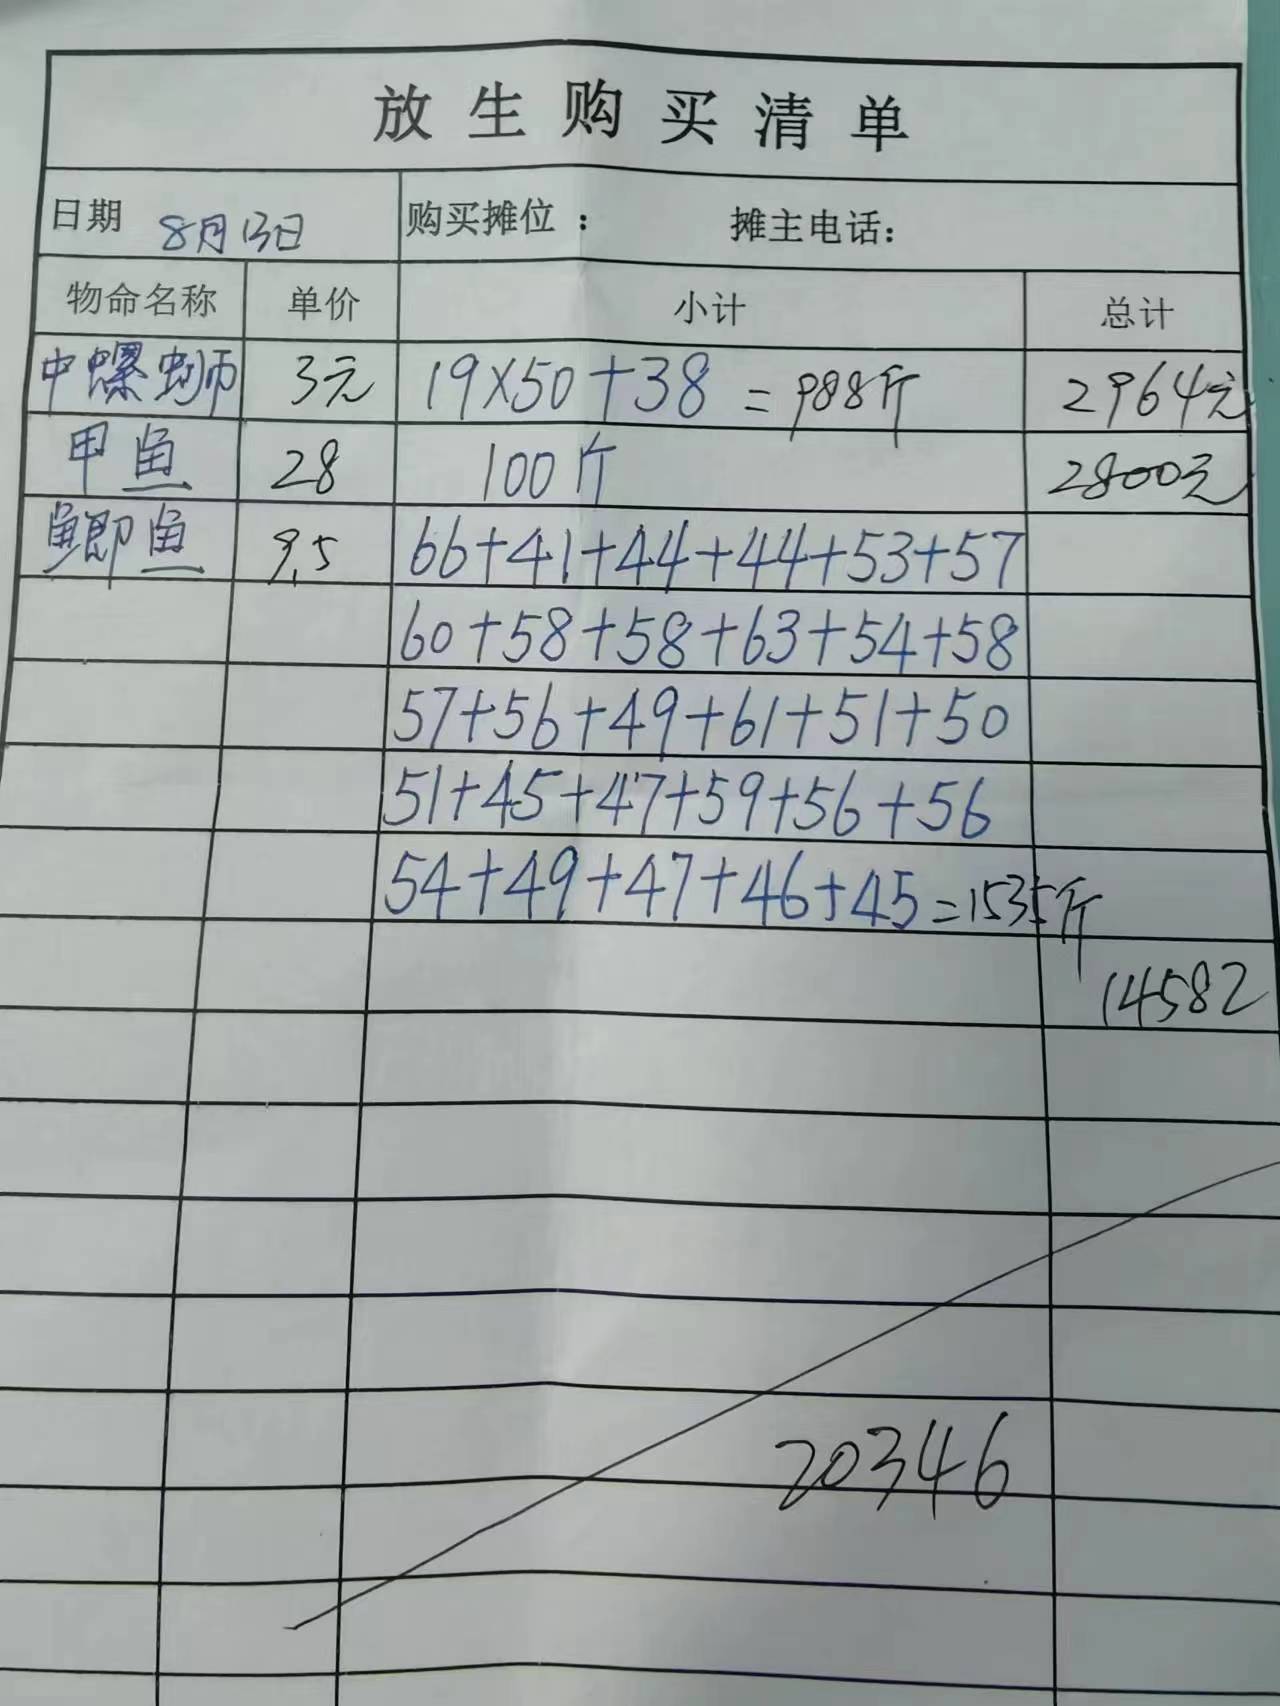 放生购买清单
日期 8月13日 购买摊位： 摊主电话：
物命名称 单价 小计 总计
中螺蛳 3元 19×50+38=988斤 2964元
甲鱼 28 100斤 2800元
鲫鱼 9.5 66+41+44+44+53+57
60+58+58+63+54+58
57+56+49+61+51+50
51+45+47+59+56+56
54+49+47+46+45=1535斤
14582
20346